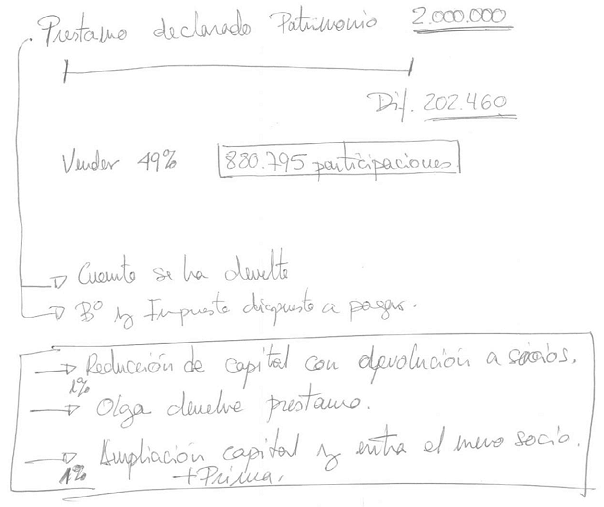 Prestamo declarado Patrimonio 2.000.000
Dif. 202.460
Vender 49% 880.795 participaciones
→ Cuanto se ha devuelto
→ Bº y Impuesto dispuesto a pagar.
→ Reducción de capital con devolución a socios.
1%
→ Olga devuelve prestamo.
→ Ampliación capital y entra el nuevo socio.
1% + Prima.